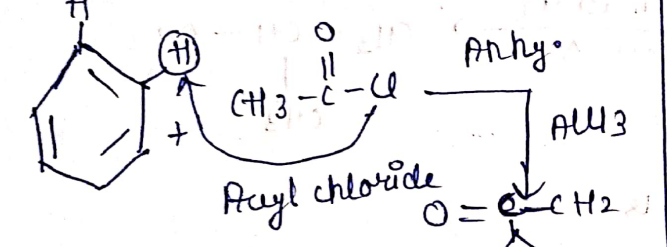 H
H
O
||
CH3-C-Cl
Anhy.
+
AlCl3
Acyl chloride
O=C-CH2